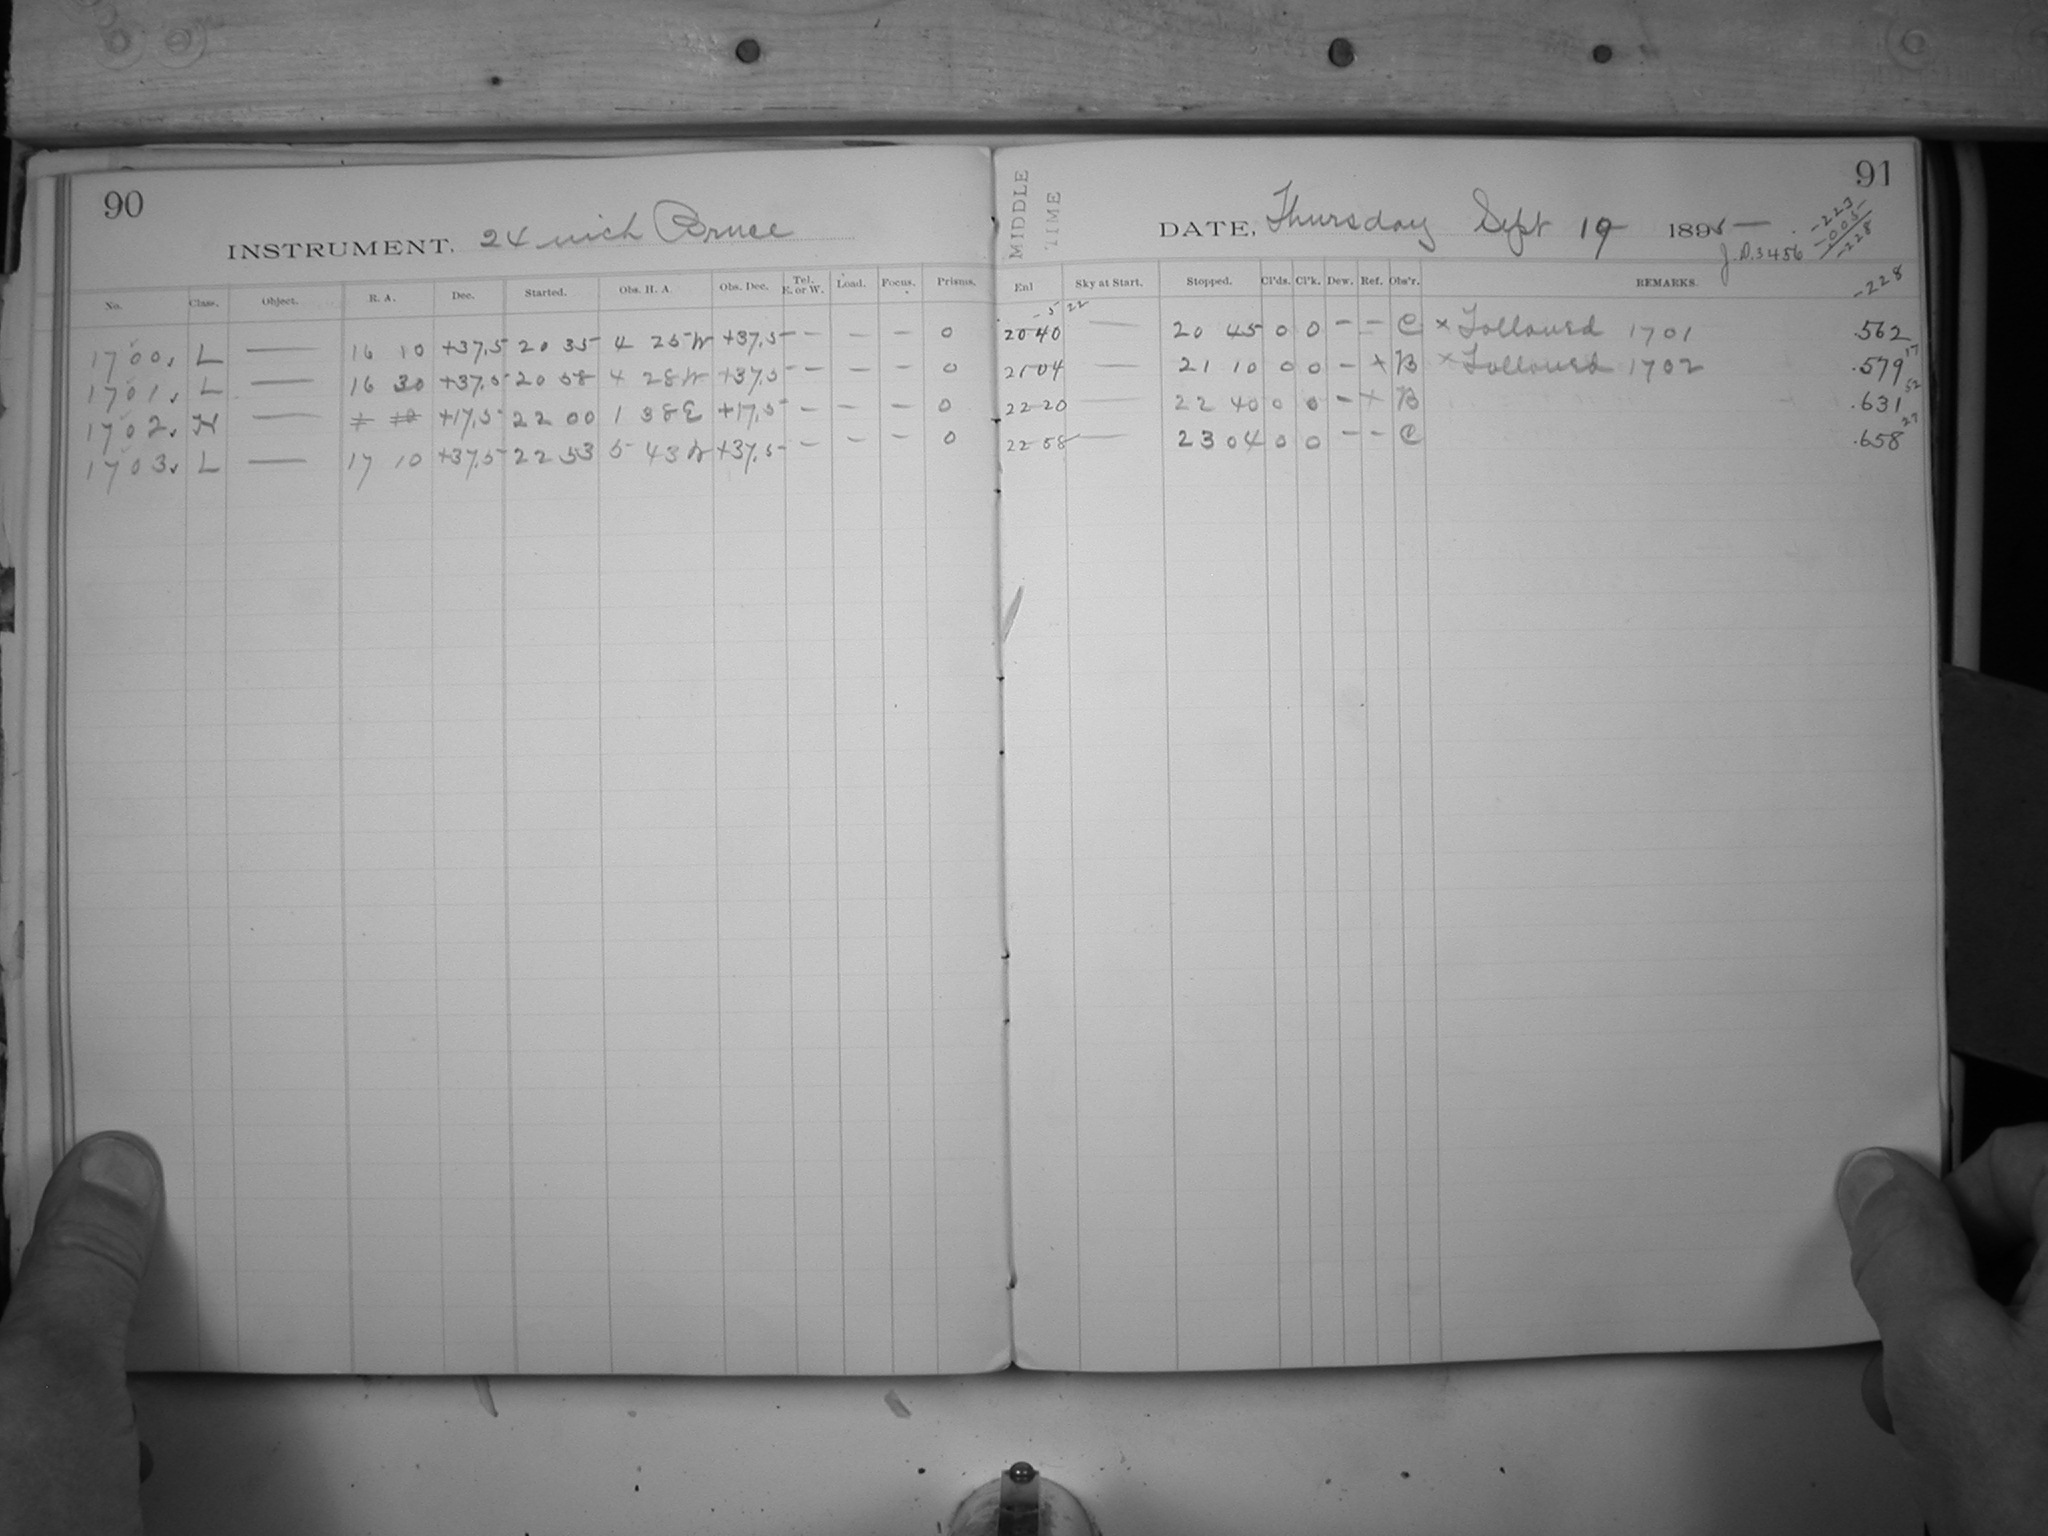 90
INSTRUMENT, 24 inch Bruce
No. Class. Object. R. A. Dec. Started. Obs. H. A. Obs. Dec. Tel. E. or W. Load. Focus. Prisms.
1700. L — 16 10 +37.5 20 35 4 25 W +37.5 — — — 0
1701. L — 16 30 +37.5 20 58 4 28 W +37.5 — — — 0
1702. H — +17.5 22 00 1 38 E +17.5 — — — 0
1703. L — 17 10 +37.5 22 53 5 43 W +37.5 — — — 0
91
MIDDLE TIME
DATE, Thursday Sept 19 1895
J.D. 3456
-.223
-.005
-.228
Enl Sky at Start. Stopped. Cl'ds. Cl'k. Dew. Ref. Obs'r. REMARKS. -228
-5 22
20 40 — 20 45 0 0 — — C × Followed 1701 .562
21 04 — 21 10 0 0 — + B × Followed 1702 .579 17
22 20 — 22 40 0 0 — + B .631 52
22 58 — 23 04 0 0 — — C .658 27